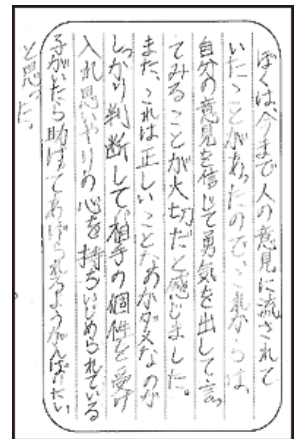 ぼくは今まで人の意見に流されて
いたことがあったので、これからは、
自分の意見を信じて勇気を出して言っ
てみることが大切だと感じました。
また、これは正しいことなのかダメなのか
しっかり判断してい相手の個性を受け
入れ思いやりの心を持ちいじめられている
子がいたら助けてあげられるようがんばりたい
と思った。